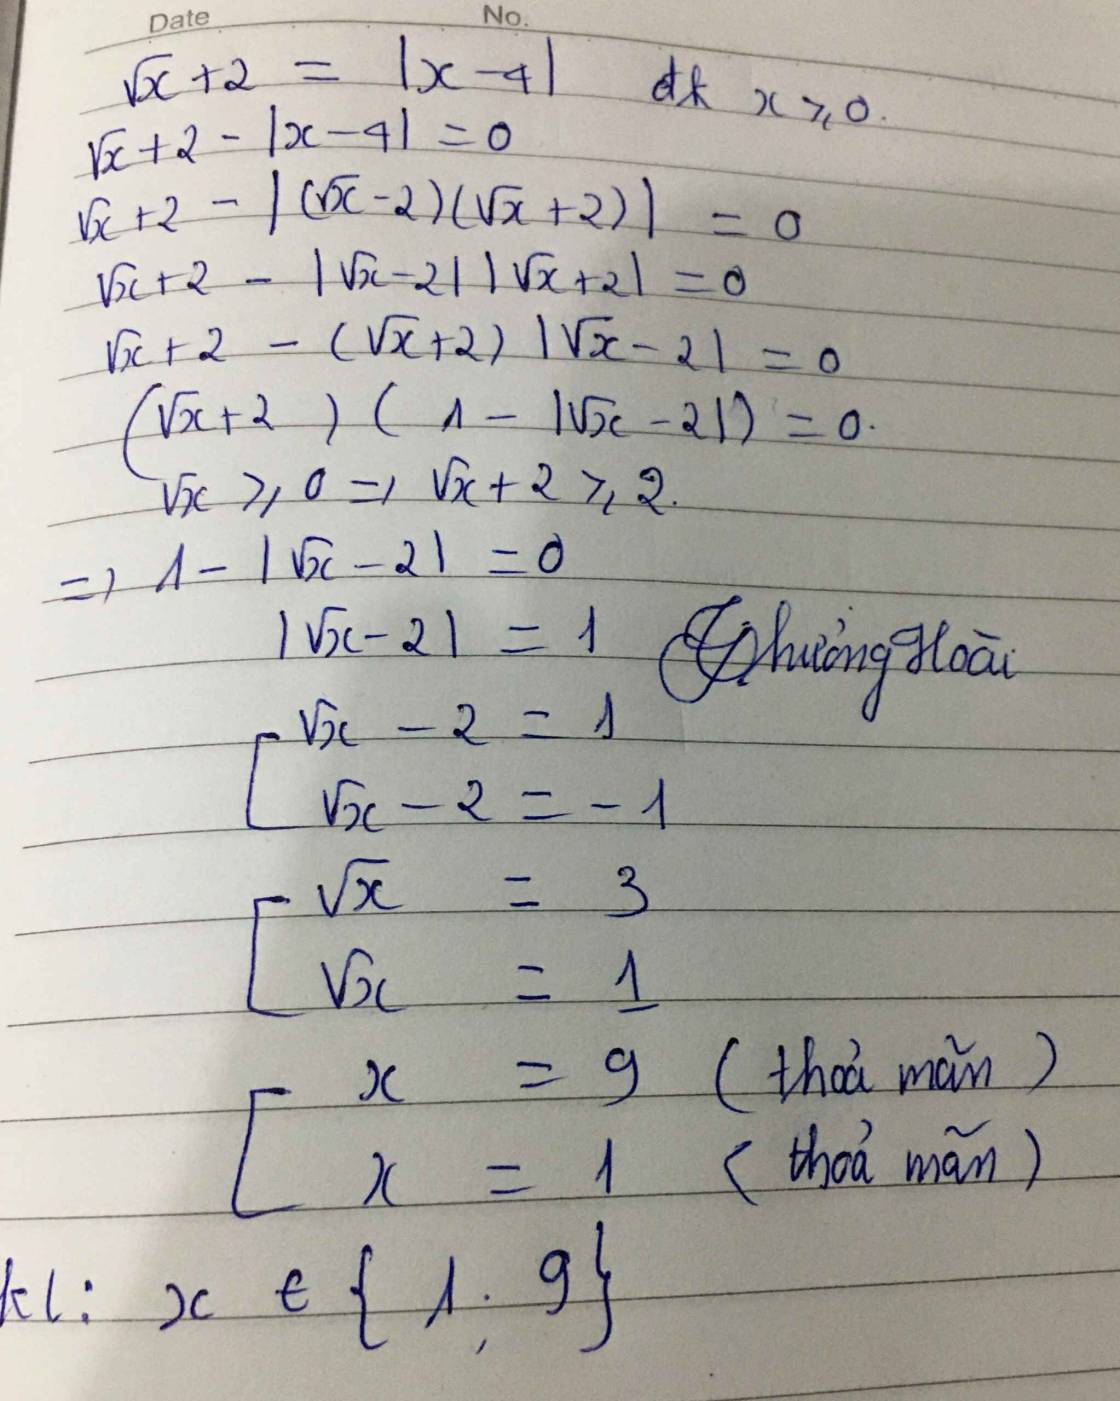 Date No.
√x + 2 = |x - 4| đk x ⩾ 0.
√x + 2 - |x - 4| = 0
√x + 2 - |(√x - 2)(√x + 2)| = 0
√x + 2 - |√x - 2| |√x + 2| = 0
√x + 2 - (√x + 2) |√x - 2| = 0
(√x + 2) (1 - |√x - 2|) = 0.
√x ⩾ 0 => √x + 2 ⩾ 2.
=> 1 - |√x - 2| = 0
|√x - 2| = 1
Phưởng Hoài
√x - 2 = 1
√x - 2 = -1
√x = 3
√x = 1
x = 9 (thoả mãn)
x = 1 (thoả mãn)
kl: x ∈ {1; 9}